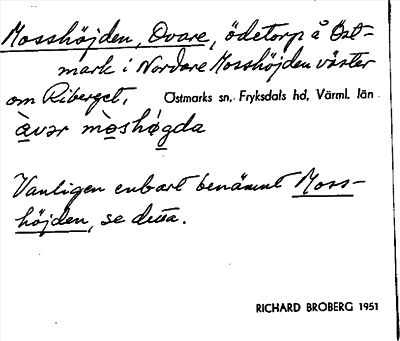 Mosshöjden, Ovare, ödetorp å Öst-
mark i Nordare Mosshöjden väster
om Riberget. Östmarks sn, Fryksdals hd, Värml. län
àvər mòshøgda
Vanligen enbart benämnt Moss-
höjden, se detta.
RICHARD BROBERG 1951